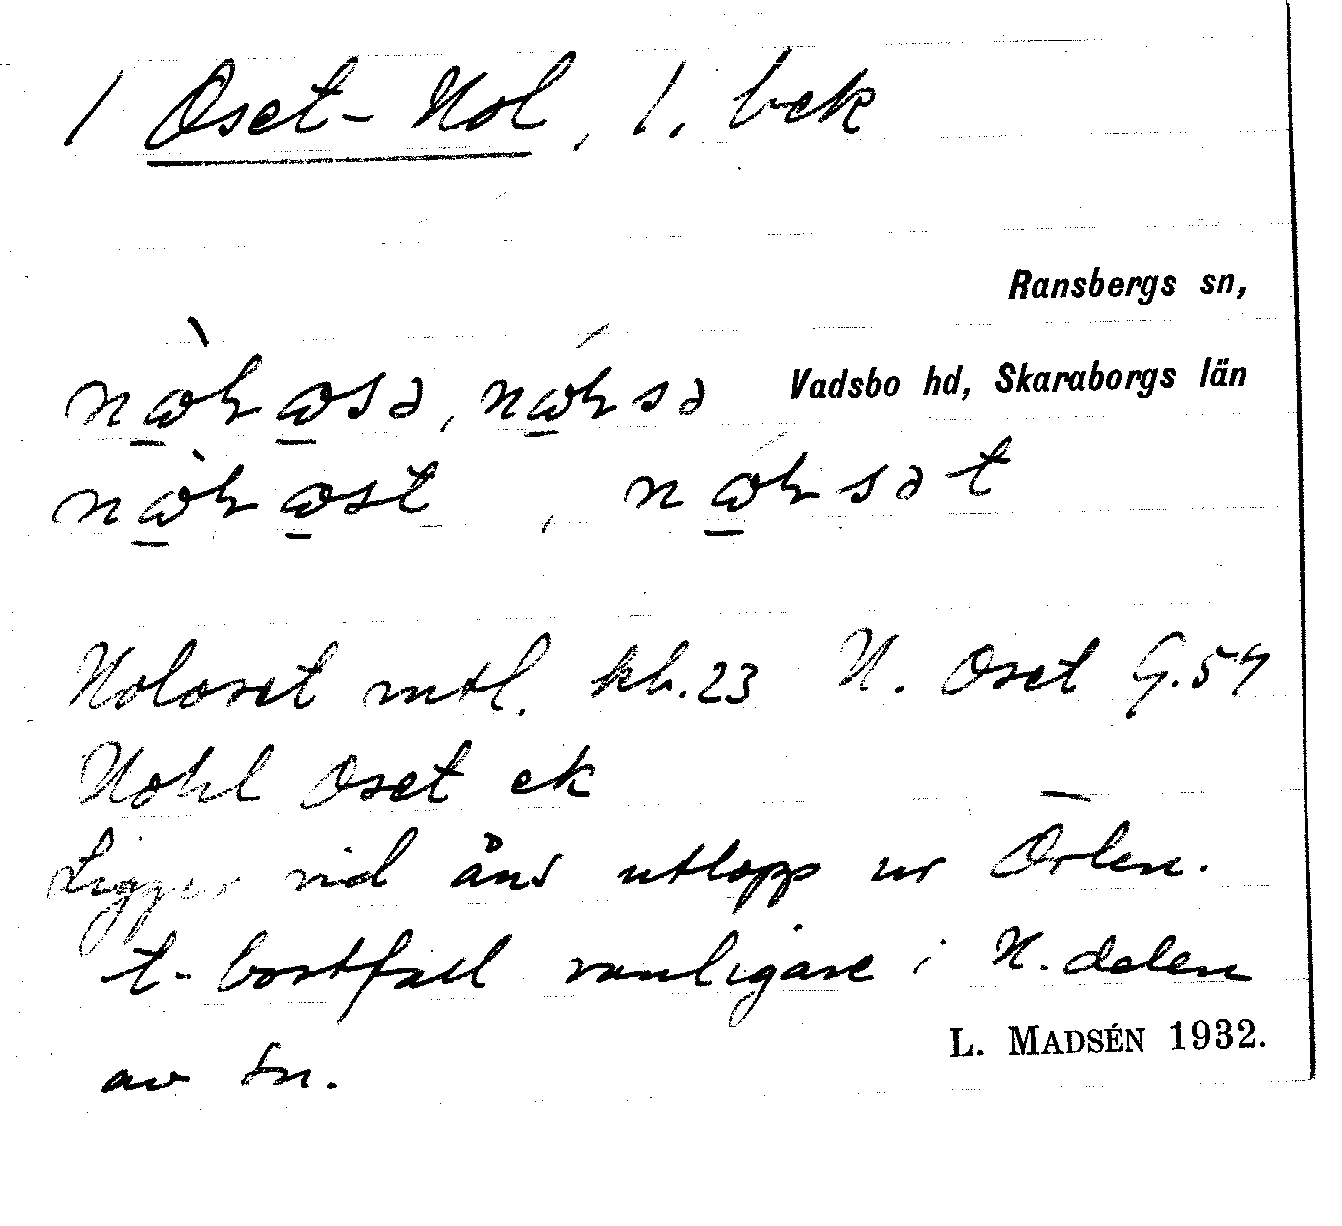 1 Oset-Nol, l. bek
Ransbergs sn,
Vadsbo hd, Skaraborgs län
Noloset mtl. kb.23 N. Oset G.54
Nohl Oset ek
Ligger vid åns utlopp ur Örlen.
t-bortfall vanligare i N.delen
av sn.
L. MADSÉN 1932.